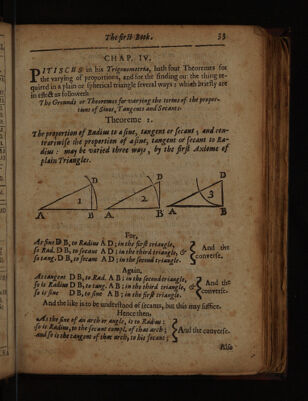 The first Book. 33
CHAP. IV.
PITISCUS in his Trigonometria, hath four Theoremes for
the varying of proportions, and for the finding out the thing re-
quired in a plain or spherical triangle several ways: which briefly are
in effect as followeth.
The Grounds or Theoremes for varying the terms of the propor-
tions of Sines, Tangents and Secants.
Theoreme 1.
The proportion of Radius to a sine, tangent or secant, and con-
trariwise the proportion of a sine, tangent or secant to Ra-
dius: may be varied three ways, by the first Axiome of
plain Triangles.
D D D
1 2 3
A B A B A B
For,
As sine D B, to Radius A D; in the first triangle,
so Rad. D B, to secant A D; in the third triangle, &
so tang. D B, to secant A D; in the second triangle.
And the
converse.
Again,
As tangent D B, to Rad. A B; in the second triangle,
so is Radius D B, to tang. A B; in the third triangle, &
so is sine D B, to sine A B; in the first triangle.
And the
converse.
And the like is to be understood of secants, but this may suffice.
Hence then,
As the sine of an arch or angle, is to Radius:
so is Radius, to the secant compl. of that arch;
and so is the tangent of that arch, to his secant;
And the converse.
Also